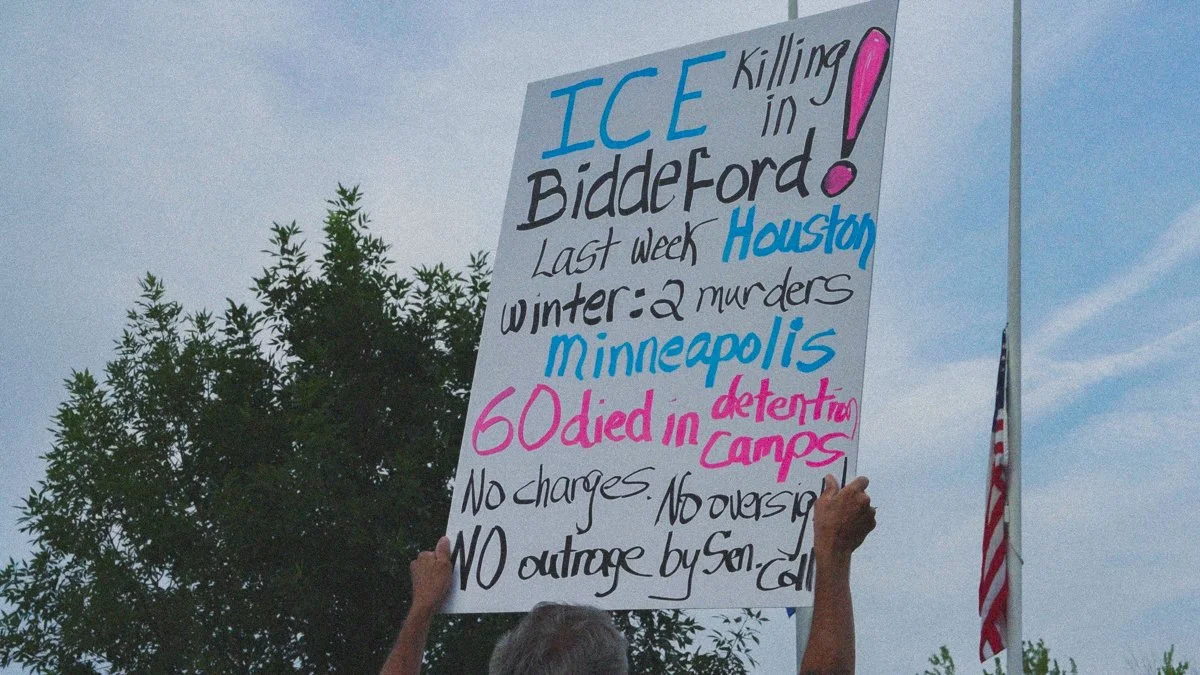 ICE Killing
in
Biddeford!
Last week Houston
winter: 2 murders
Minneapolis
60 died in detention
camps
No charges. No
NO outrage by Sen.